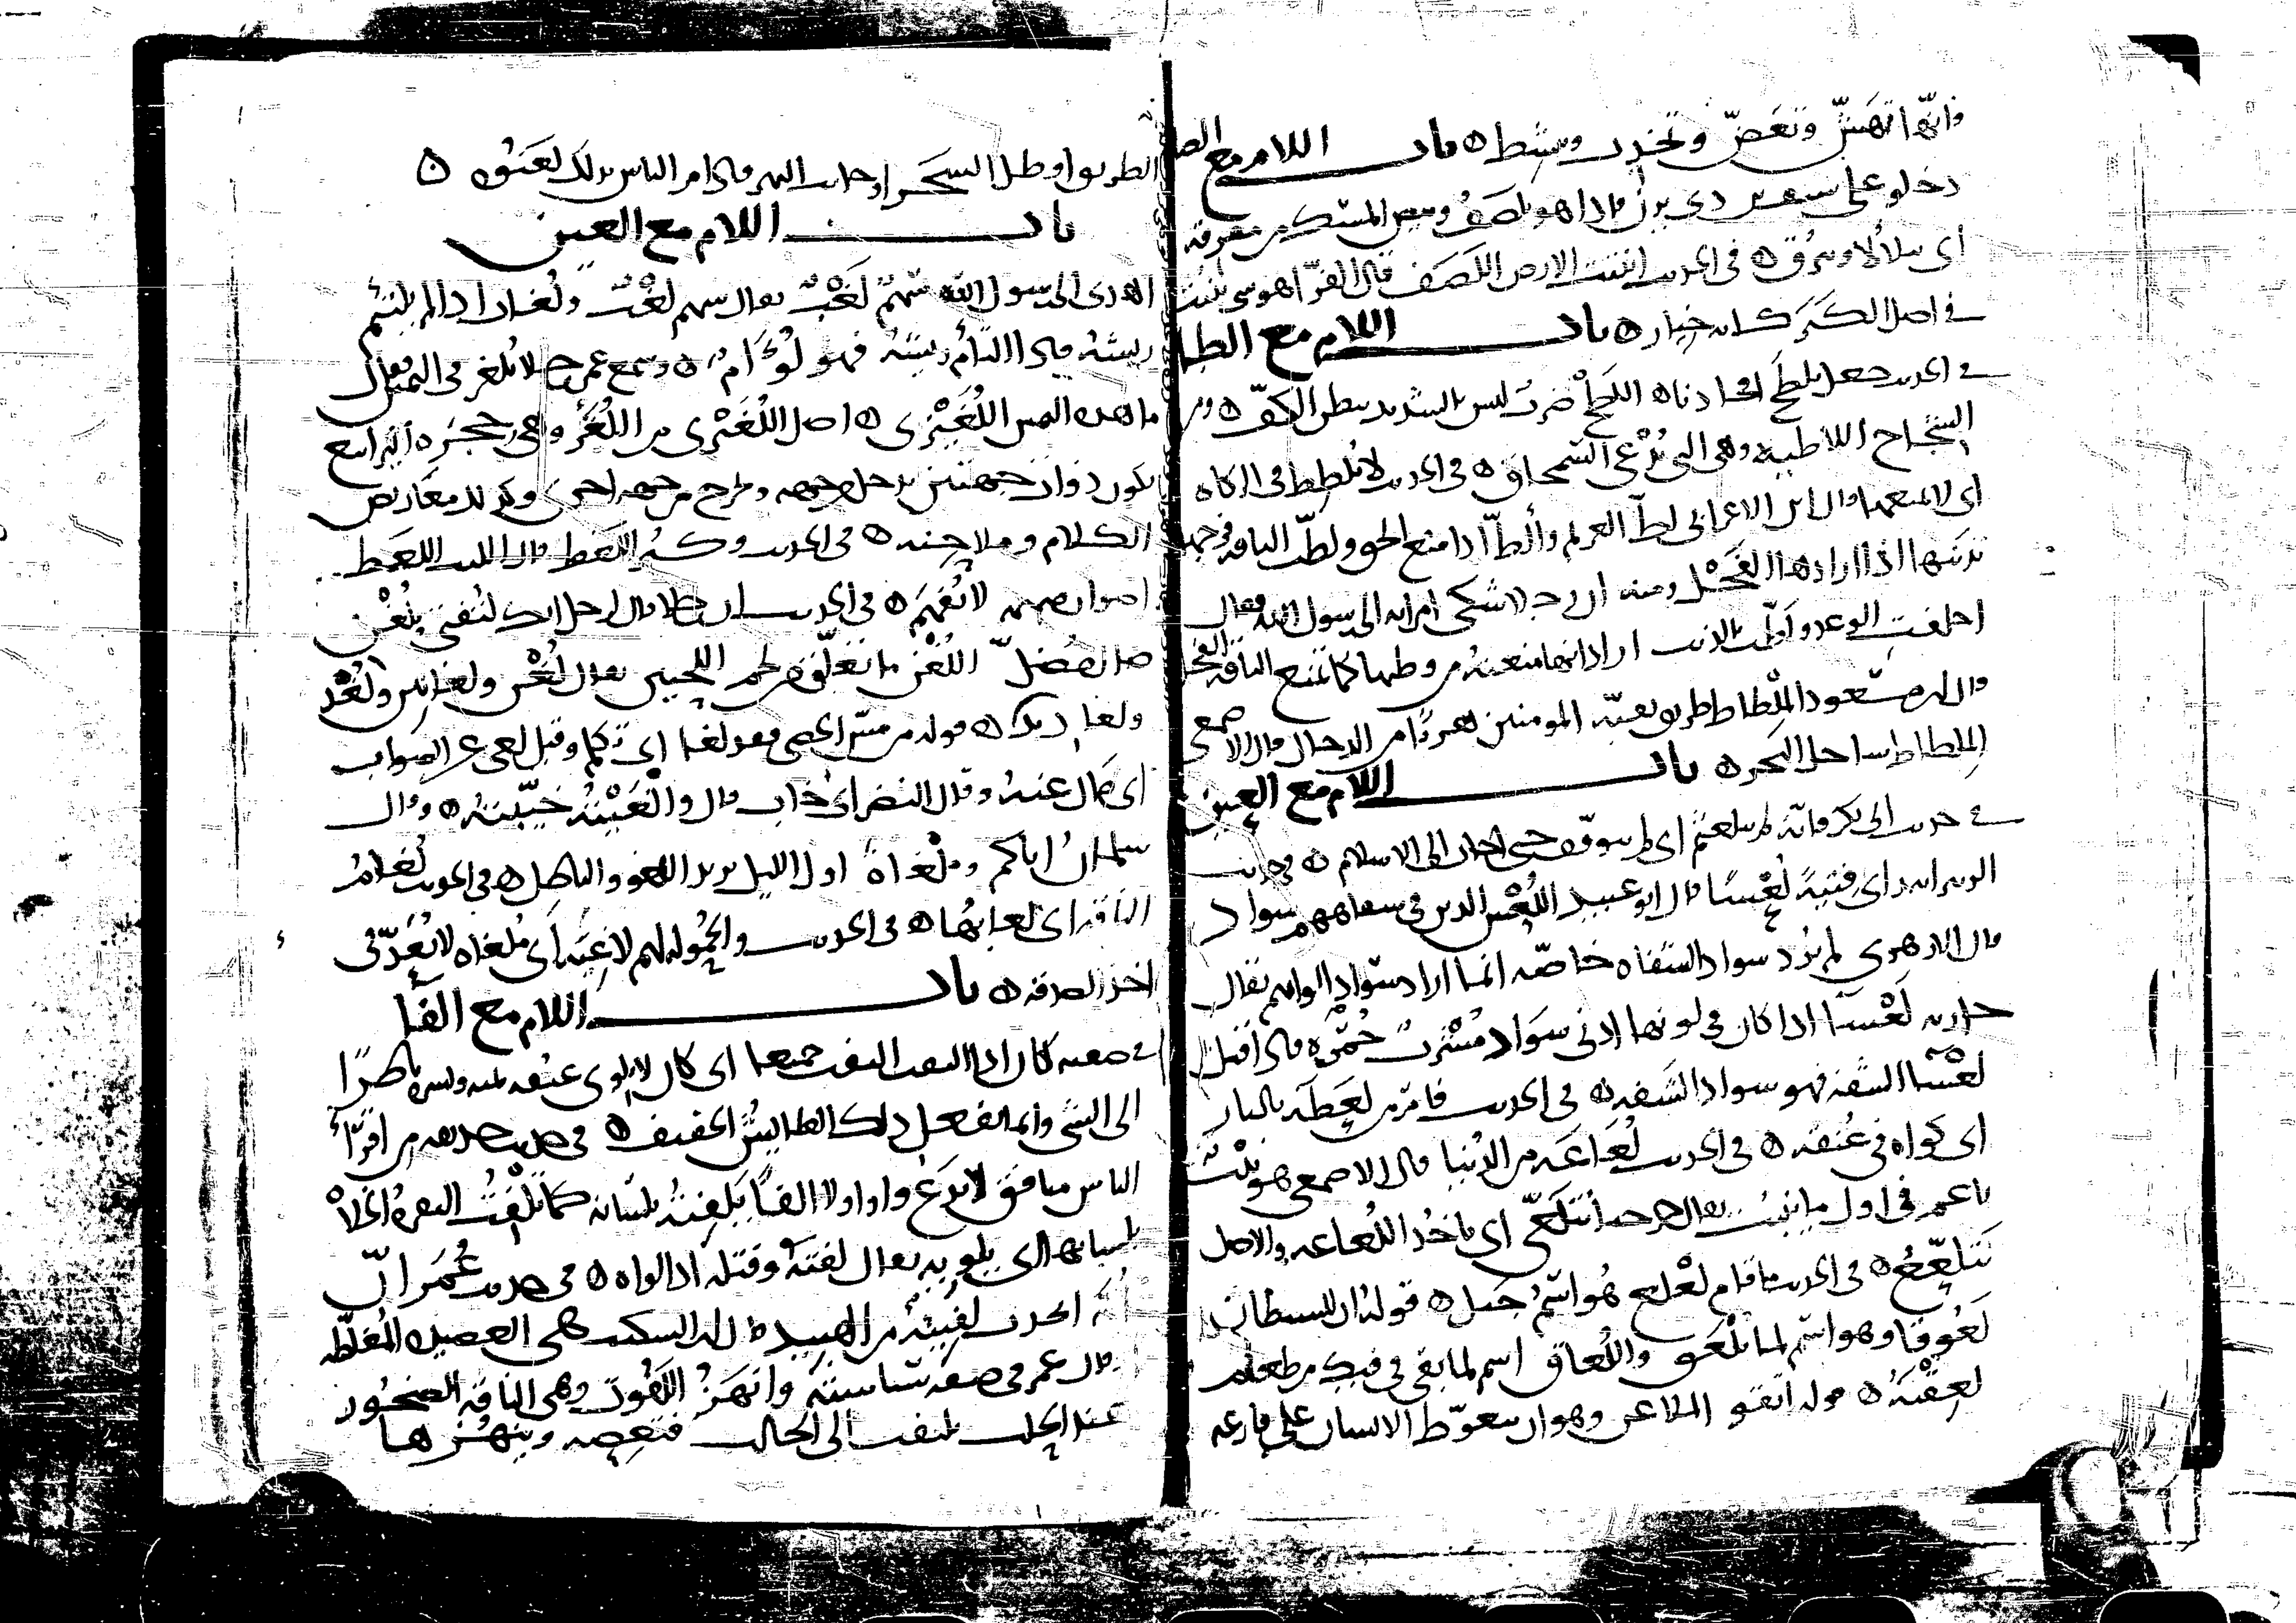 وانها تهش وتعض وتخدب وتنشط ه باب اللام مع الصاد
دخلوا على سيف بن ذي يزن فاذا هو يلصف وبيص المسك من مفرقه
أي يتلألأ ويبرق ه في الحديث انبتت الارض اللصف قال الفرا هو شي ينبت
في اصل الكبر كانه خيار ه باب اللام مع الطا
في الحديث جعل يلطح افخاذنا ه اللطح ضرب ليس بالشديد ببطن الكف ه
الشجاج اللاطية وهي التي تدعى السمحاق ه في الحديث لا تلطط في الزكاه
اي لا تمنعها وقال ابن الاعرابي لط الغريم وألط اذا منع الحق ولطت الناقة فرجها
بذنبها اذا ارادها الفحل ومنه ان رجلا شكى امراته الى رسول الله فقال
اخلفت الوعد ولطت بالذنب اراد انها منعته من وطيها كما تمنع الناقة الفحل
قال ابن مسعود الملطاط طريق بقية المومنين هرابا من الدجال قال الاصمعي
الملطاط ساحل البحر ه باب اللام مع العين
في حديث ابي بكر فانه لم يتلعثم اي لم يتوقف حتى اجاب الى الاسلام ه في حديث
الزبير انه راى فتية لعسا قال ابو عبيد اللعس الذين في شفاههم سواد
قال الازهري لم يرد سواد الشفاه خاصه انما اراد سواد الوانهم يقال
جارية لعسا اذا كان في لونها ادنى سواد مشرب حمرة فاذا قيل
لعسا الشفه فهو سواد الشفه ه في الحديث فامر من لعطه بالنار
اي كواه في عنقه ه في الحديث لعاعه من الدنيا قال الاصمعي هو نبت
ناعم في اول ما ينبت يقال خرجنا نتلعى اي ناخذ اللعاعه والاصل
نتلعع ه في الحديث ما قام لعلع هو اسم جبل ه قوله ان للشيطان
لعوقا وهو اسم لما يلعق واللعاق اسم لما بقي في فيك من طعام
لعقته ه قوله اتقو الملاعن وهو ان يتغوط الانسان على قارعه
الطريق او ظل الشجر او جانب النهر فاذا مر الناس بذلك لعنوه ه
باب اللام مع الغين
اهدى الى رسول الله سهم لغب يقال سهم لغب ولغاب اذا لم يلتئم
ريشه فاذا التأم ريشه فهو لؤام ه وسمع عمر رجلا يلغز في اليمين فقال
ما هذه اليمين اللغيزى ه اصل اللغيزى من اللغز وهي جحرة اليرابيع
تكون ذوات جهتين يدخل من جهه ويخرج من جهه اخرى وكذلك معاريض
الكلام وملاحنه ه في الحديث وكثر اللغط قال الليث اللغط
اصوات مبهمه لا تفهم ه في الحديث ان رجلا قال لرجل انك لتفتي بلغن
ضال مضل اللغن ما تعلق من لحم اللحيين يقال لغن ولغانين ولغد
ولغاديد ه قوله من مس الحصى فقد لغا اي تكلم وقيل لغى عن الصواب
اي مال عنه وقال النضر اي خاب قال والغيته خيبته ه وقال
سلمان اياكم وملغاة اول الليل يريد اللغو والباطل ه في الحديث لغام
الناقه اي لعابها ه في الحديث والحمولة لهم لاغيه اي ملغاه لا تعد في
اخذ الصدقه ه باب اللام مع الفا
في صفته كان اذا التفت التفت جميعا اي كان لا يلوي عنقه يمنه ويسره ناظرا
الى الشي وانما يفعل ذلك الطايش الخفيف ه في حديث حذيفه من اقرأ
الناس منافق لا يدع واوا ولا الفا يلفته بلسانه كما تلفت البقره الخلا
بلسانها اي يلويه يقال لفته وفتله اذا لواه ه في حديث عمر ان
امه اتخذت لفيته من الهبيد قال ابن السكيت هي العصيده المغلظه
قال عمر في صفه سياسته وانهز اللفوت وهي الناقه الضجور
عند الحلب تلتفت الى الحالب فتعضه وينهزها